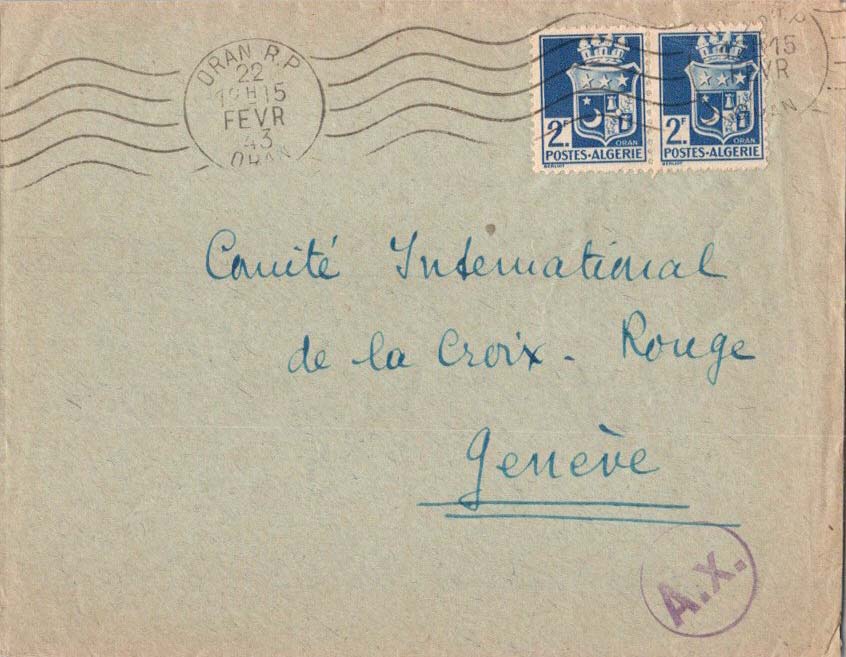 ORAN R.P
22
19H15
FEVR
43
ORAN
R.P
H15
FEVR
ORAN
2F.
ORAN
POSTES-ALGERIE
2F.
ORAN
POSTES-ALGERIE
Comité International
de la Croix-Rouge
Genève
A.x.